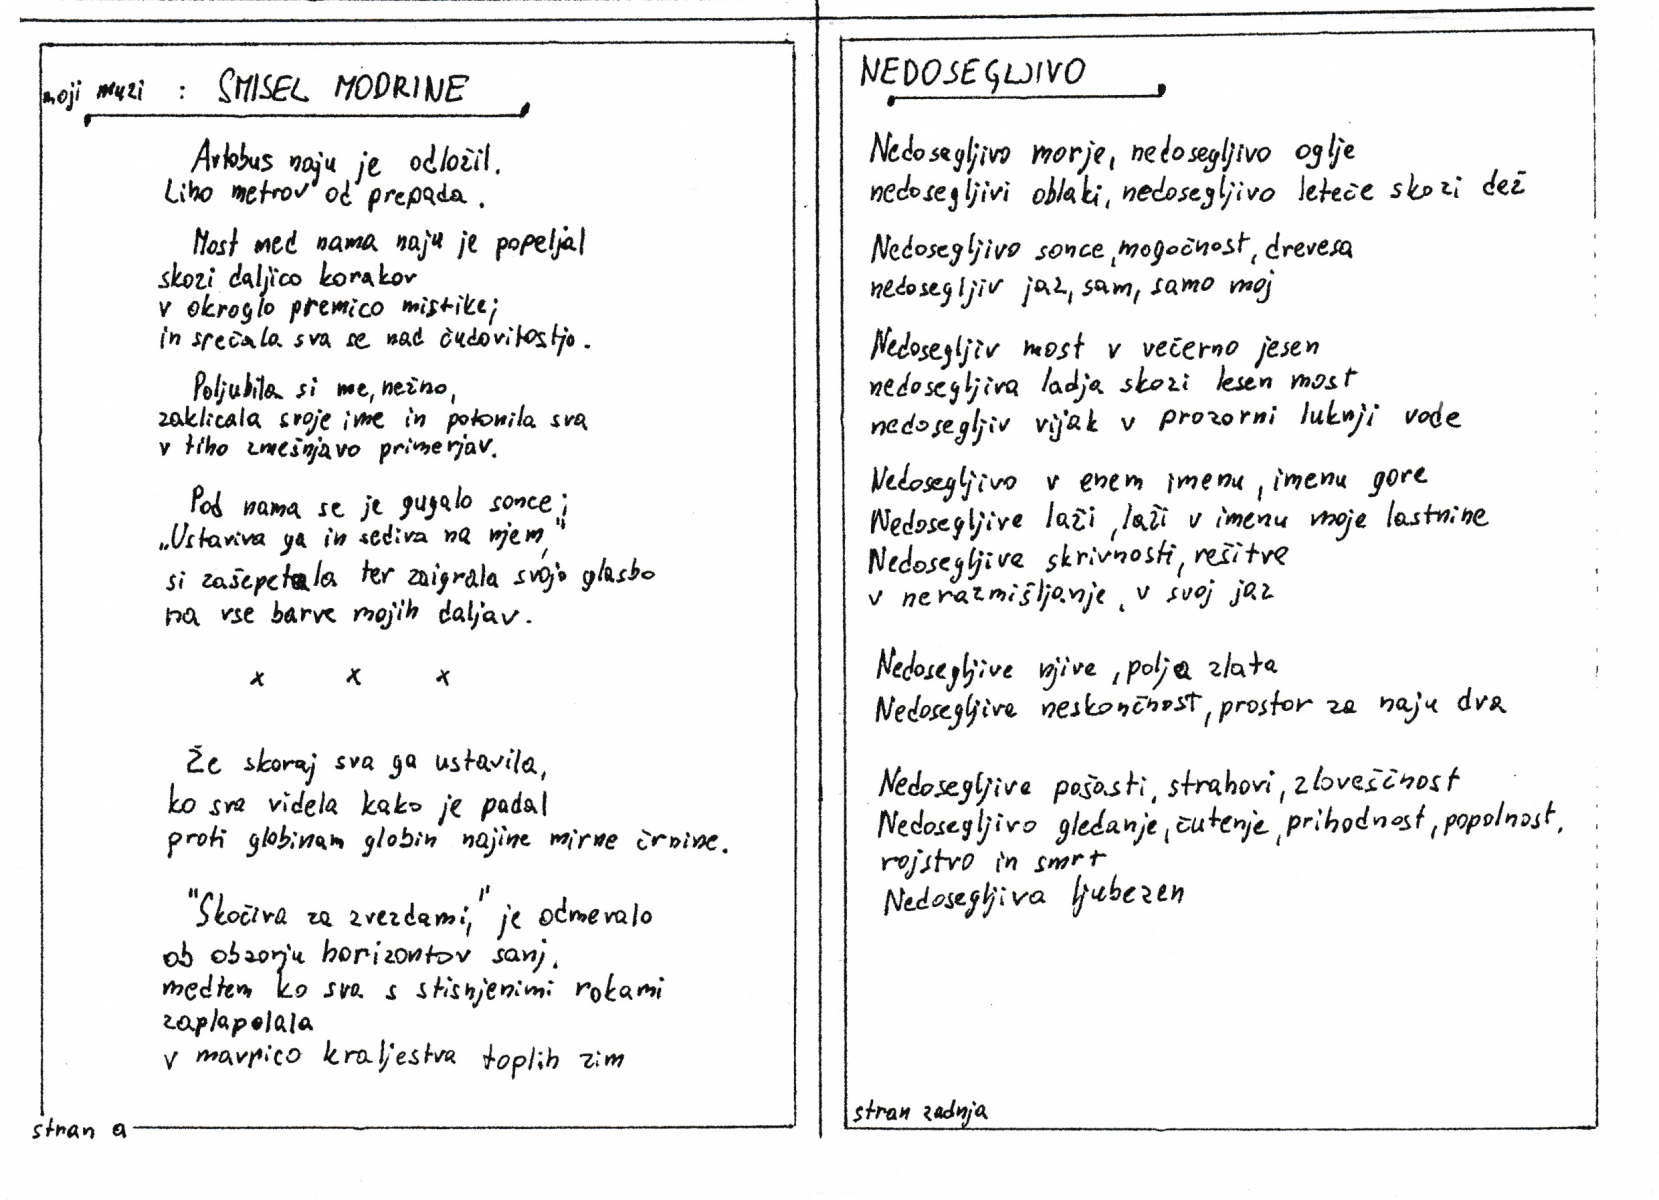 moji muzi : SMISEL MODRINE
Avtobus naju je odložil.
Liho metrov od prepada.
Most med nama naju je popeljal
skozi daljico korakov
v okroglo premico mistike;
in srečala sva se nad čudovitostjo.
Poljubila si me, nežno,
zaklicala svoje ime in potonila sva
v tiho zmešnjavo primerjav.
Pod nama se je gugalo sonce;
„Ustaviva ga in sediva na njem,"
si zašepetala ter zaigrala svojo glasbo
na vse barve mojih daljav.
x x x
Že skoraj sva ga ustavila,
ko sva videla kako je padal
proti globinam globin najine mirne črnine.
"Skočiva za zvezdami," je odmevalo
ob obzorju horizontov sanj,
medtem ko sva s stisnjenimi rokami
zaplapolala
v mavrico kraljestva toplih zim
stran a
NEDOSEGLJIVO
Nedosegljivo morje, nedosegljivo oglje
nedosegljivi oblaki, nedosegljivo leteče skozi dež
Nedosegljivo sonce, mogočnost, drevesa
nedosegljiv jaz, sam, samo moj
Nedosegljiv most v večerno jesen
nedosegljiva ladja skozi lesen most
nedosegljiv vijak v prozorni luknji vode
Nedosegljivo v enem imenu, imenu gore
Nedosegljive laži, laži v imenu moje lastnine
Nedosegljive skrivnosti, rešitve
v nerazmišljanje, v svoj jaz
Nedosegljive njive, polja zlata
Nedosegljiva neskončnost, prostor za naju dva
Nedosegljive pošasti, strahovi, zloveščnost
Nedosegljivo gledanje, čutenje, prihodnost, popolnost,
rojstvo in smrt
Nedosegljiva ljubezen
stran zadnja